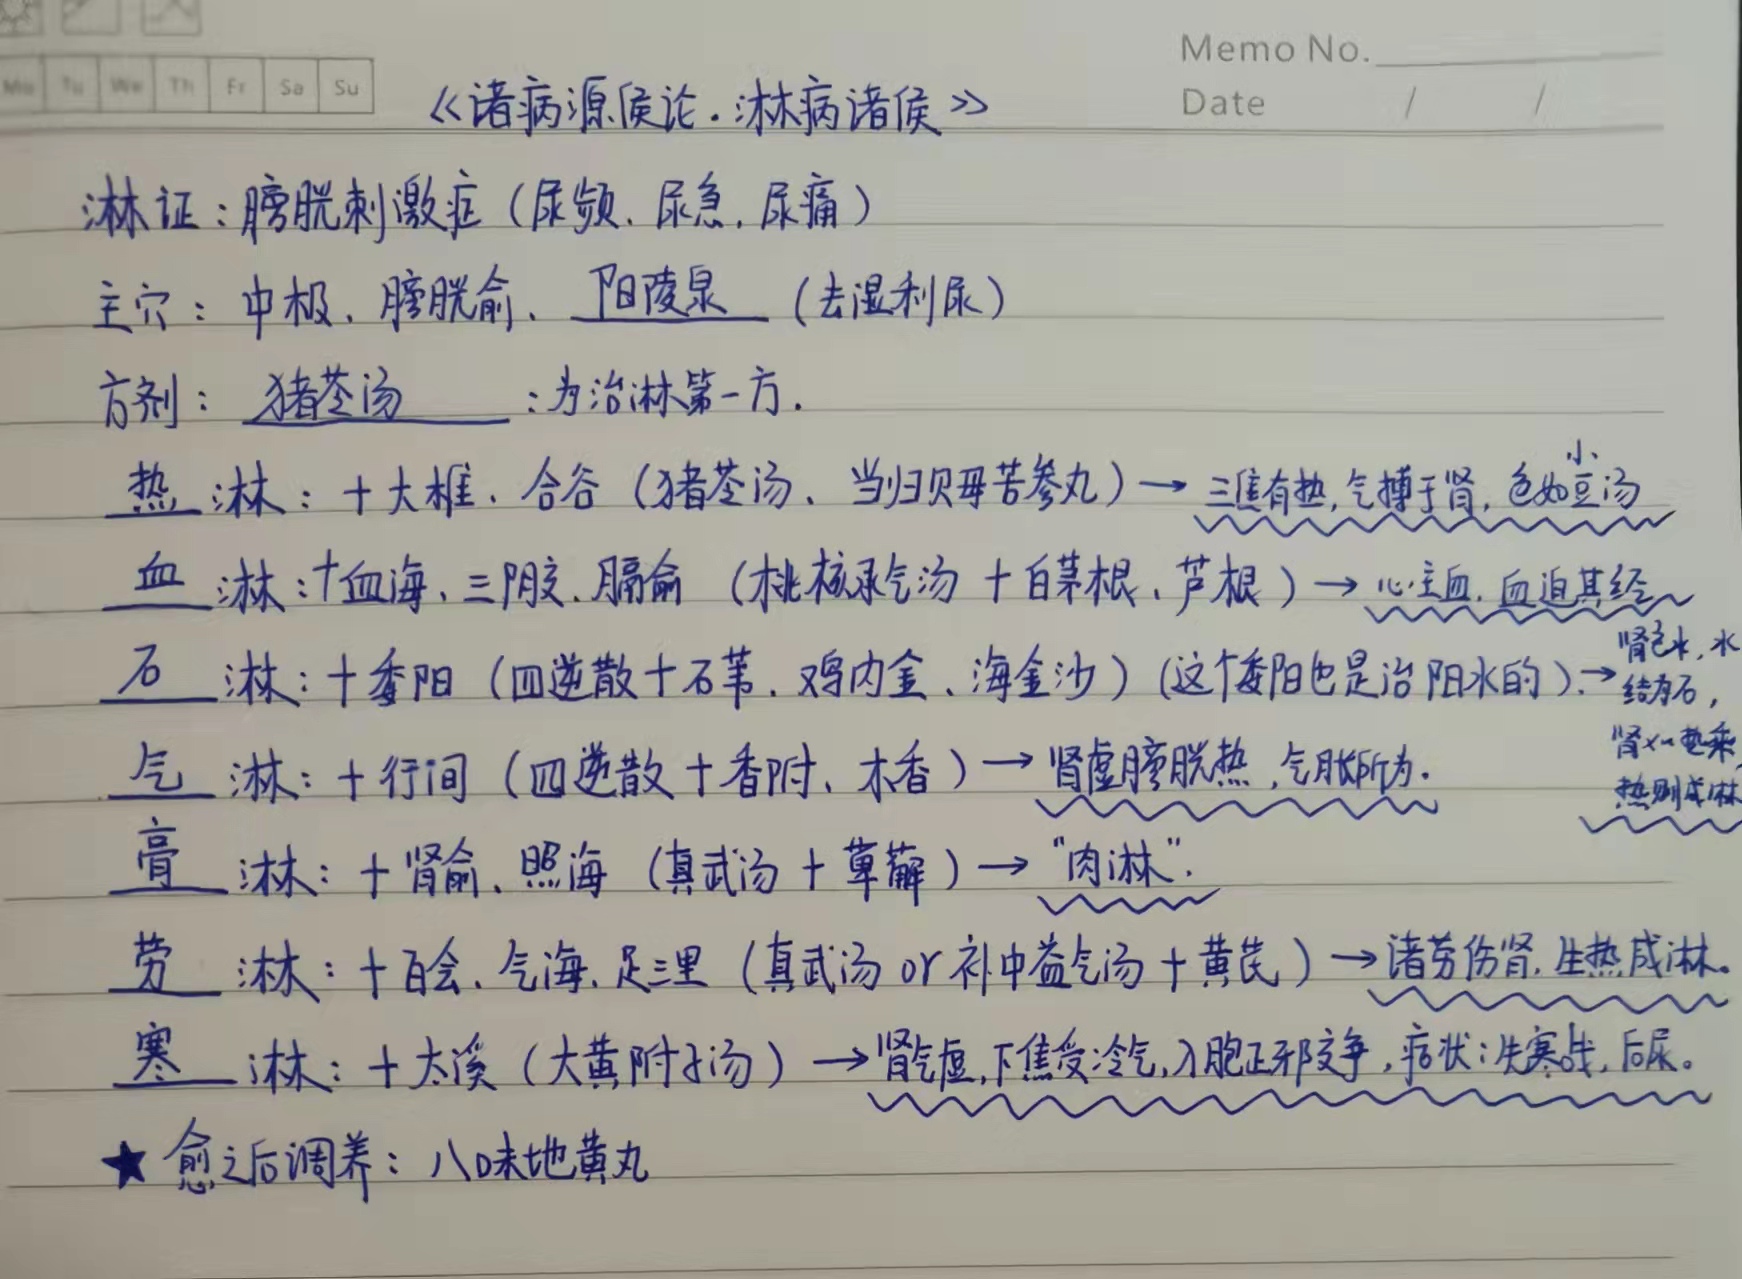 Mo Tu We Th Fr Sa Su
Memo No.
Date / /
《诸病源侯论·淋病诸侯》
淋证：膀胱刺激症（尿频、尿急、尿痛）
主穴：中极、膀胱俞、阳陵泉（去湿利尿）
方剂：猪苓汤：为治淋第一方.
热淋：+大椎、合谷（猪苓汤、当归贝母苦参丸）→三焦有热,气搏于肾,色如小豆汤
血淋：+血海、三阴交、膈俞（桃核承气汤+白茅根、芦根）→心主血,血迫其经
石淋：+委阳（四逆散+石苇、鸡内金、海金沙）（这个委阳也是治阳水的）.→肾主水,水
结为石,
肾 热乘,
热则成淋
气淋：+行间（四逆散+香附、木香）→肾虚膀胱热,气胀所为.
膏淋：+肾俞、照海（真武汤+萆薢）→“肉淋”.
劳淋：+百会、气海、足三里（真武汤or补中益气汤+黄芪）→诸劳伤肾,生热成淋。
寒淋：+太溪（大黄附子汤）→肾气虚,下焦受冷气,入胞正邪交争,症状:先寒战,后尿。
★愈之后调养：八味地黄丸